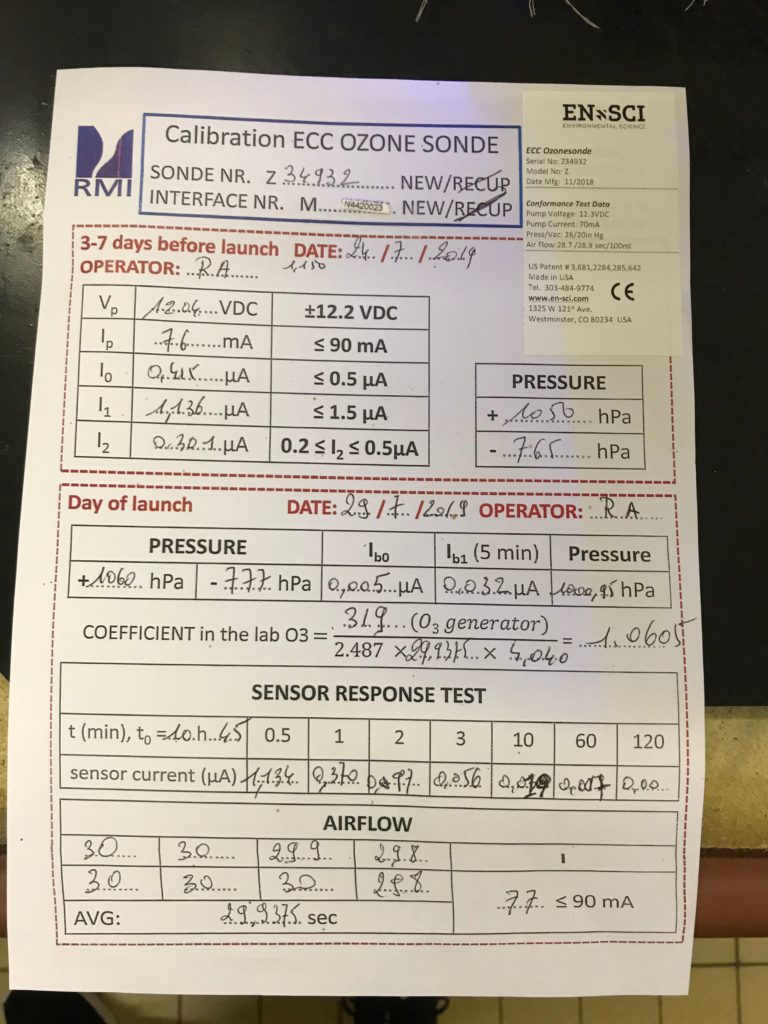 RMI
Calibration ECC OZONE SONDE
SONDE NR. Z 34932 NEW/RECUP
INTERFACE NR. M N4420023 NEW/RECUP
EN-SCI
ENVIRONMENTAL SCIENCE
ECC Ozonesonde
Serial No: Z34932
Model No: Z
Date Mfg: 11/2018
Conformance Test Data
Pump Voltage: 12.3VDC
Pump Current: 70mA
Press/Vac: 26/20in Hg
Air Flow:28.7 /28.9 sec/100ml
US Patent # 3,681,2284,285,642
Made in USA
Tel. 303-484-9774
www.en-sci.com
1325 W 121st Ave.
Westminster, CO 80234 USA
CE
3-7 days before launch DATE: 24 / 7 / 2019
OPERATOR: R.A 1,150
Vp 12.04 VDC ±12.2 VDC
Ip 76 mA ≤ 90 mA
I0 0,415 µA ≤ 0.5 µA
I1 1,136 µA ≤ 1.5 µA
I2 0.301 µA 0.2 ≤ I2 ≤ 0.5µA
PRESSURE
+ 1050 hPa
- 765 hPa
Day of launch DATE: 29 / 7 / 2019 OPERATOR: R.A
PRESSURE Ib0 Ib1 (5 min) Pressure
+1060 hPa - 777 hPa 0,005 µA 0.032 µA 1000,95 hPa
COEFFICIENT in the lab O3 = 319 (O3 generator) / 2.487 × 29,9375 × 4,040 = 1.0605
SENSOR RESPONSE TEST
t (min), t0 = 10.h 45 0.5 1 2 3 10 60 120
sensor current (µA) 1,134 0,370 0,097 0,056 0,019 0,007 0,00
AIRFLOW
30 30 29.9 29.8 I
30 30 30 29.8 77 ≤ 90 mA
AVG: 29,9375 sec